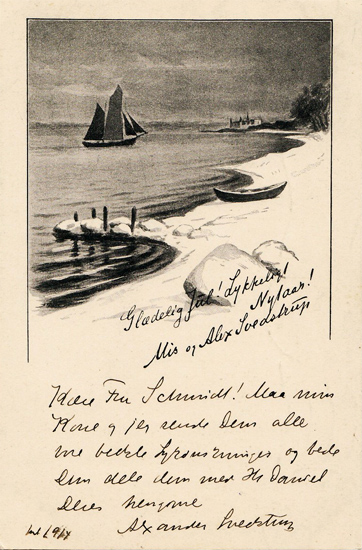 Glædelig Jul! Lykkeligt
Nytaar!
Mis og Alex Svedstrup
Kære Fru Schmidt! Maa min
Kone og jeg sende Dem alle
vore bedste og bede
Dem dele dem med Hr Daniel
Deres hengivne
Alexander Svedstrup